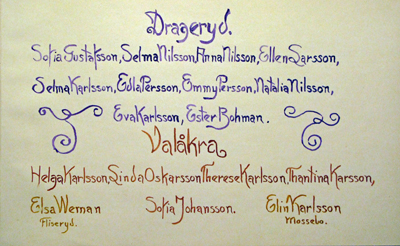 Drageryd.
Sofia Gustafsson, Selma Nilsson, Anna Nilsson, Ellen Larsson,
Selma Karlsson, Edla Persson, Emmy Persson, Natalia Nilsson,
Eva Karlsson, Ester Bohman.
Valåkra
Helga Karlsson, Linda Oskarsson Therese Karlsson, Thantina Karsson,
Elsa Weman Sofia Johansson. Elin Karlsson
Fliseryd. Mossebo.